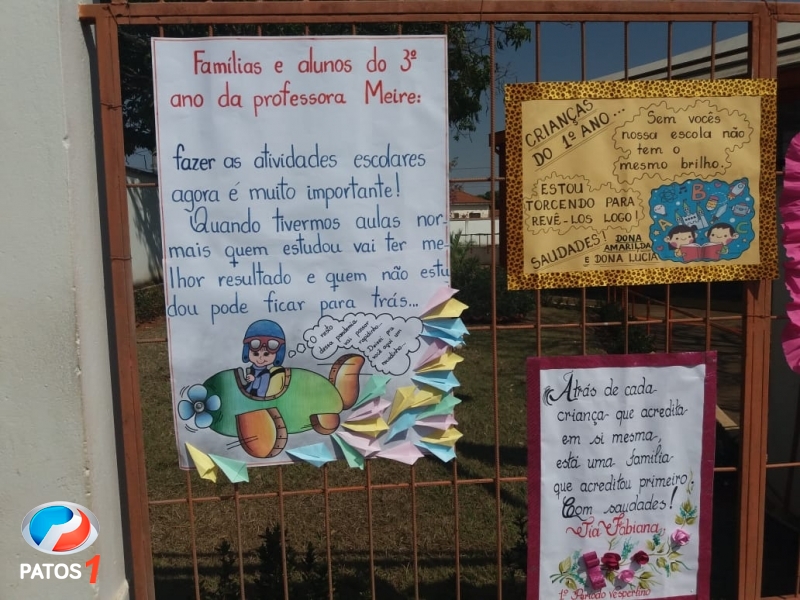 Famílias e alunos do 3º
ano da professora Meire:
fazer as atividades escolares
agora é muito importante!
Quando tivermos aulas nor-
mais quem estudou vai ter me-
lhor resultado e quem não estu
dou pode ficar para trás...
resto
dessa pandemia
vai passar
rapidinho...
CRIANÇAS
DO 1º ANO...
Sem vocês
nossa escola não
tem o
mesmo brilho.
ESTOU
TORCENDO PARA
REVÊ-LOS LOGO!
SAUDADES!
DONA
AMARILDA
E DONA LUCIA
A B C
Atrás de cada
criança que acredita
em si mesma,
está uma família
que acreditou primeiro.
Com saudades!
Tia Fabiana
1º Período vespertino
PATOS 1